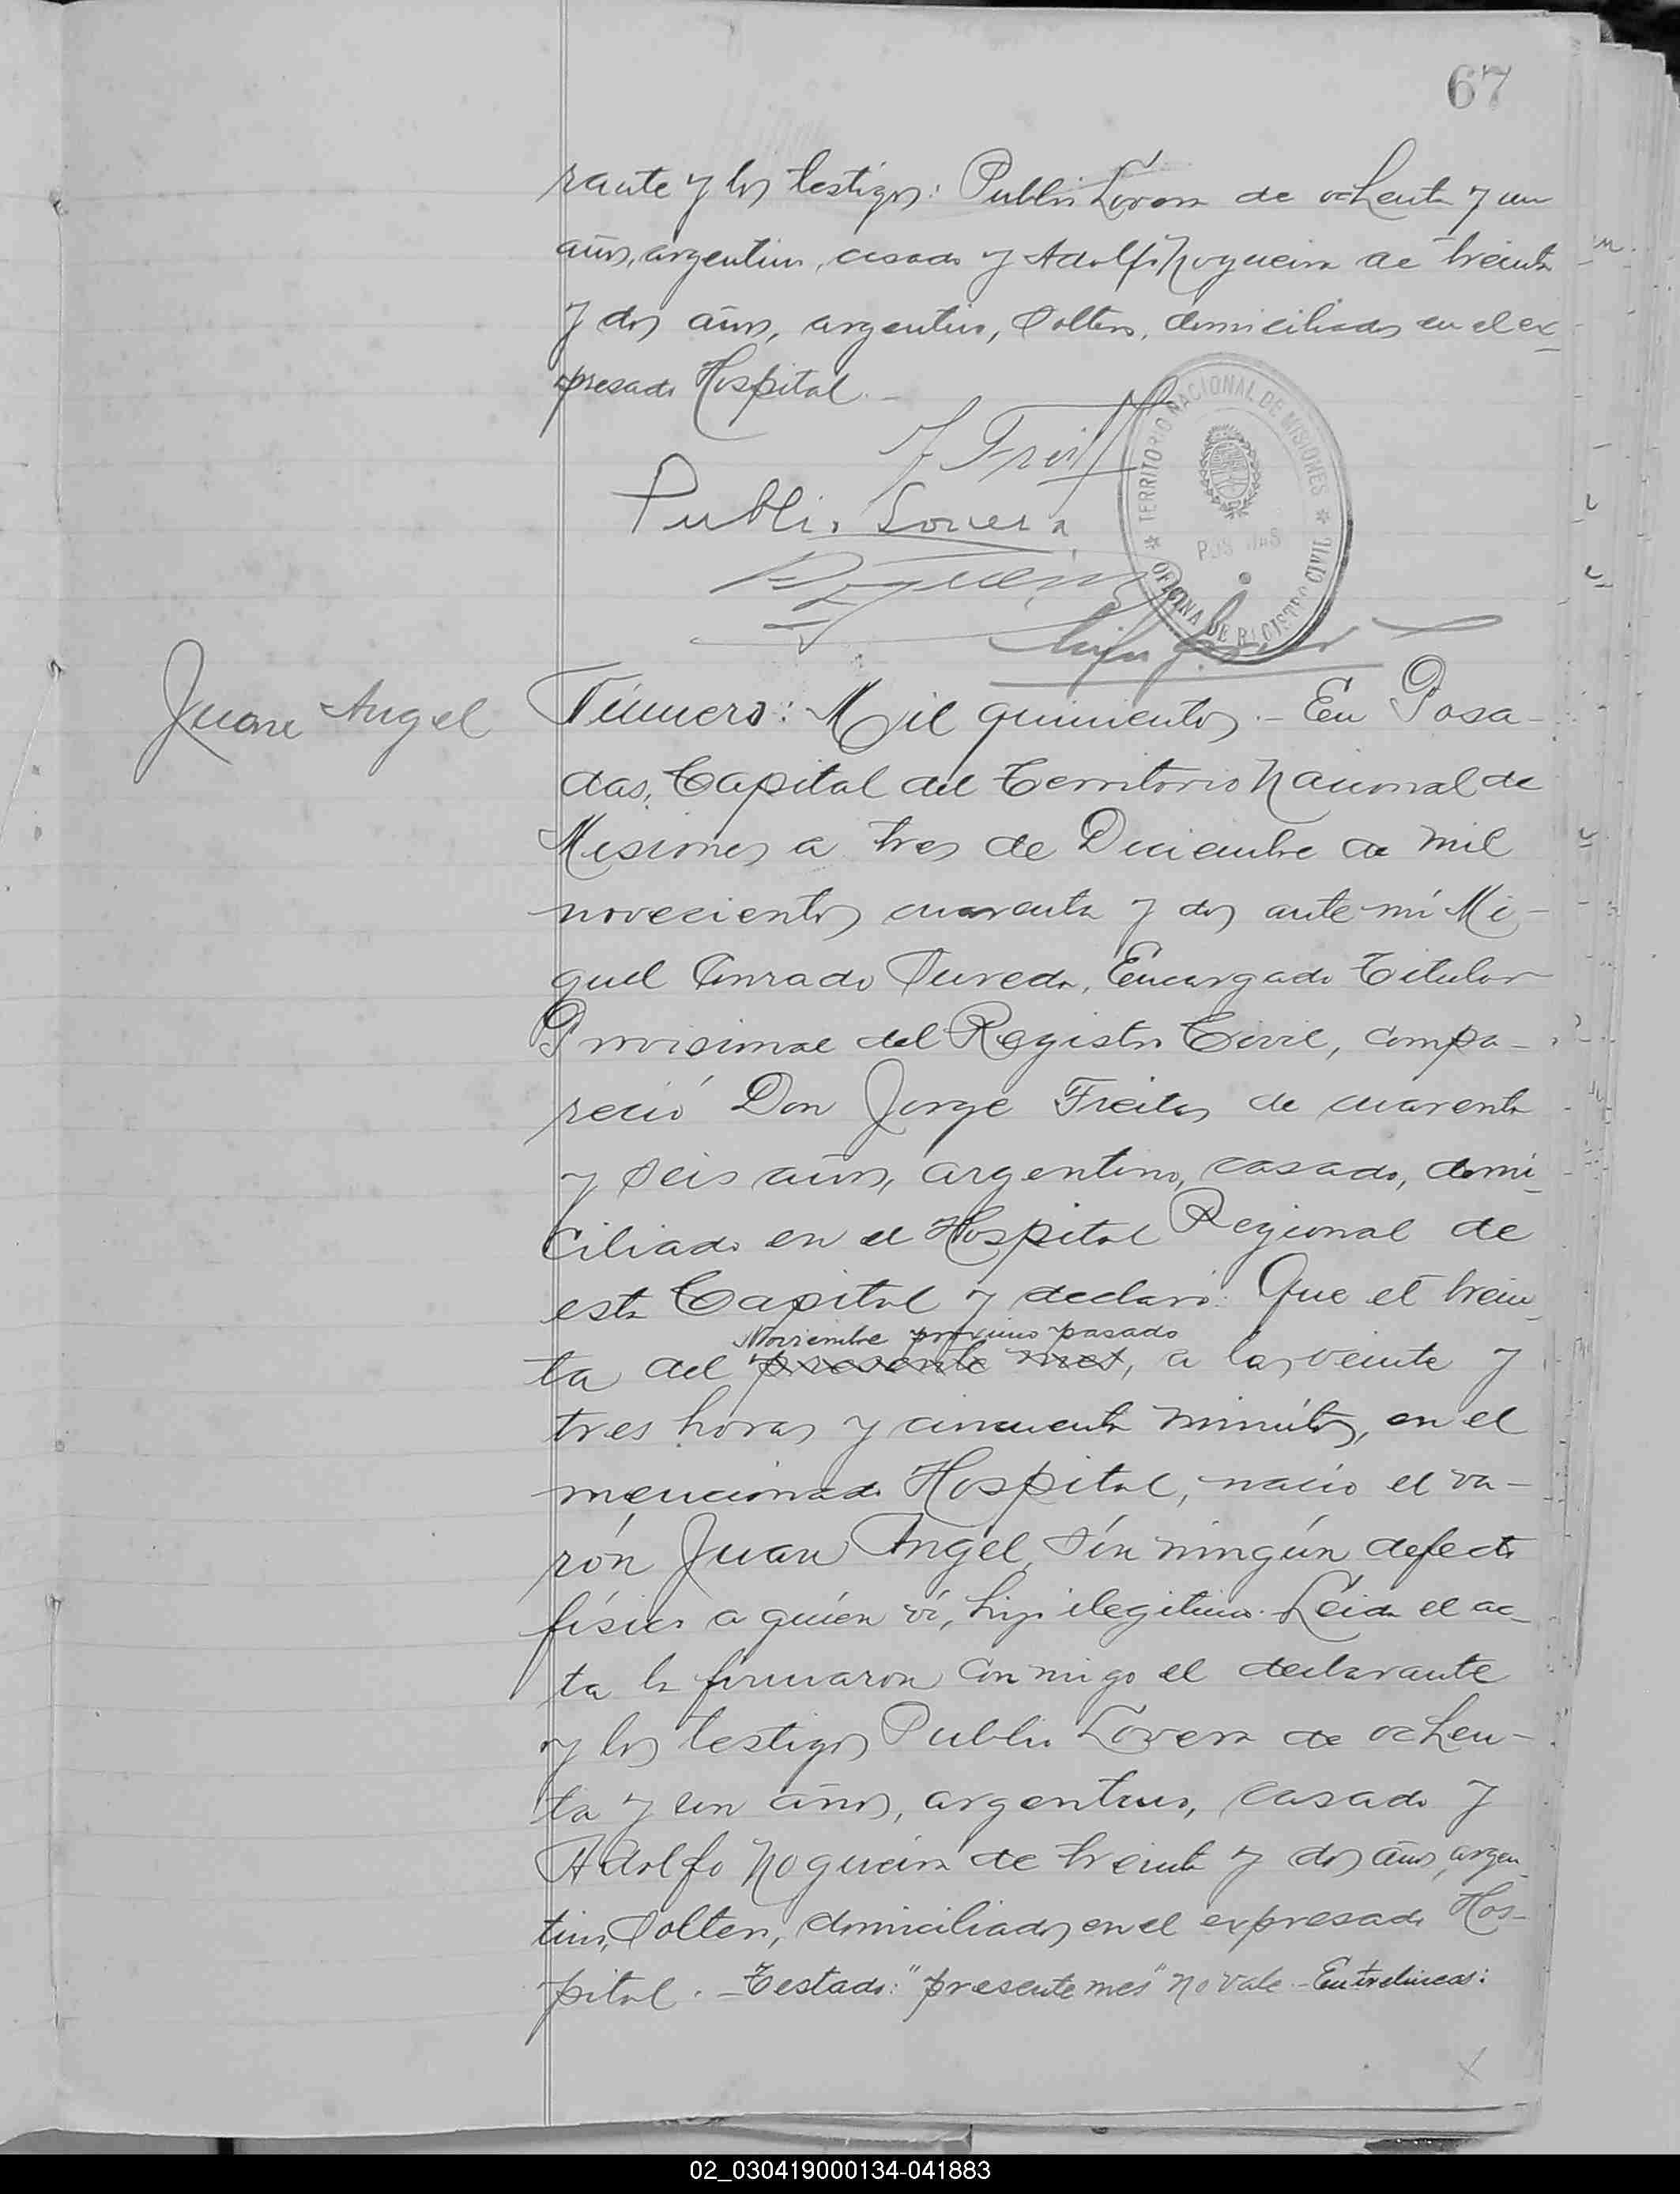 67
rante y los testigos: Publio Lovera de ochenta y un
años, argentino, casado y Adolfo Nogueira de treinta
y dos años, argentino, soltero, domiciliados en el ex-
presado Hospital.-
Publio Lovera
TERRITORIO NACIONAL DE MISIONES
POSADAS
OFICINA DE REGISTRO CIVIL
Juan Angel
Número: Mil quinientos.- En Posa-
das, Capital del Territorio Nacional de
Misiones a tres de Diciembre de mil
novecientos cuarenta y dos ante mí Mi-
guel Conrado Sureda, Encargado Titular
Provisional del Registro Civil, compa-
reció Don Jorge Freitas de cuarenta
y seis años, argentino, casado, domi-
ciliado en el Hospital Regional de
esta Capital y declaró: Que el trein-
Noviembre próximo pasado
ta del presente mes, a las veinte y
tres horas y cincuenta minutos, en el
mencionado Hospital, nació el va-
rón Juan Angel, sín ningún defecto
físico a quién ví, hijo ilegítimo. Leida el ac-
ta la firmaron conmigo el declarante
y los testigos Publio Lovera de ochen-
ta y un años, argentino, casado y
Adolfo Nogueira de treinta y dos años, argen-
tino, soltero, domiciliados en el expresado Hos-
pital.- Testado: "presente mes" no vale - Entrelineas:
02_030419000134-041883